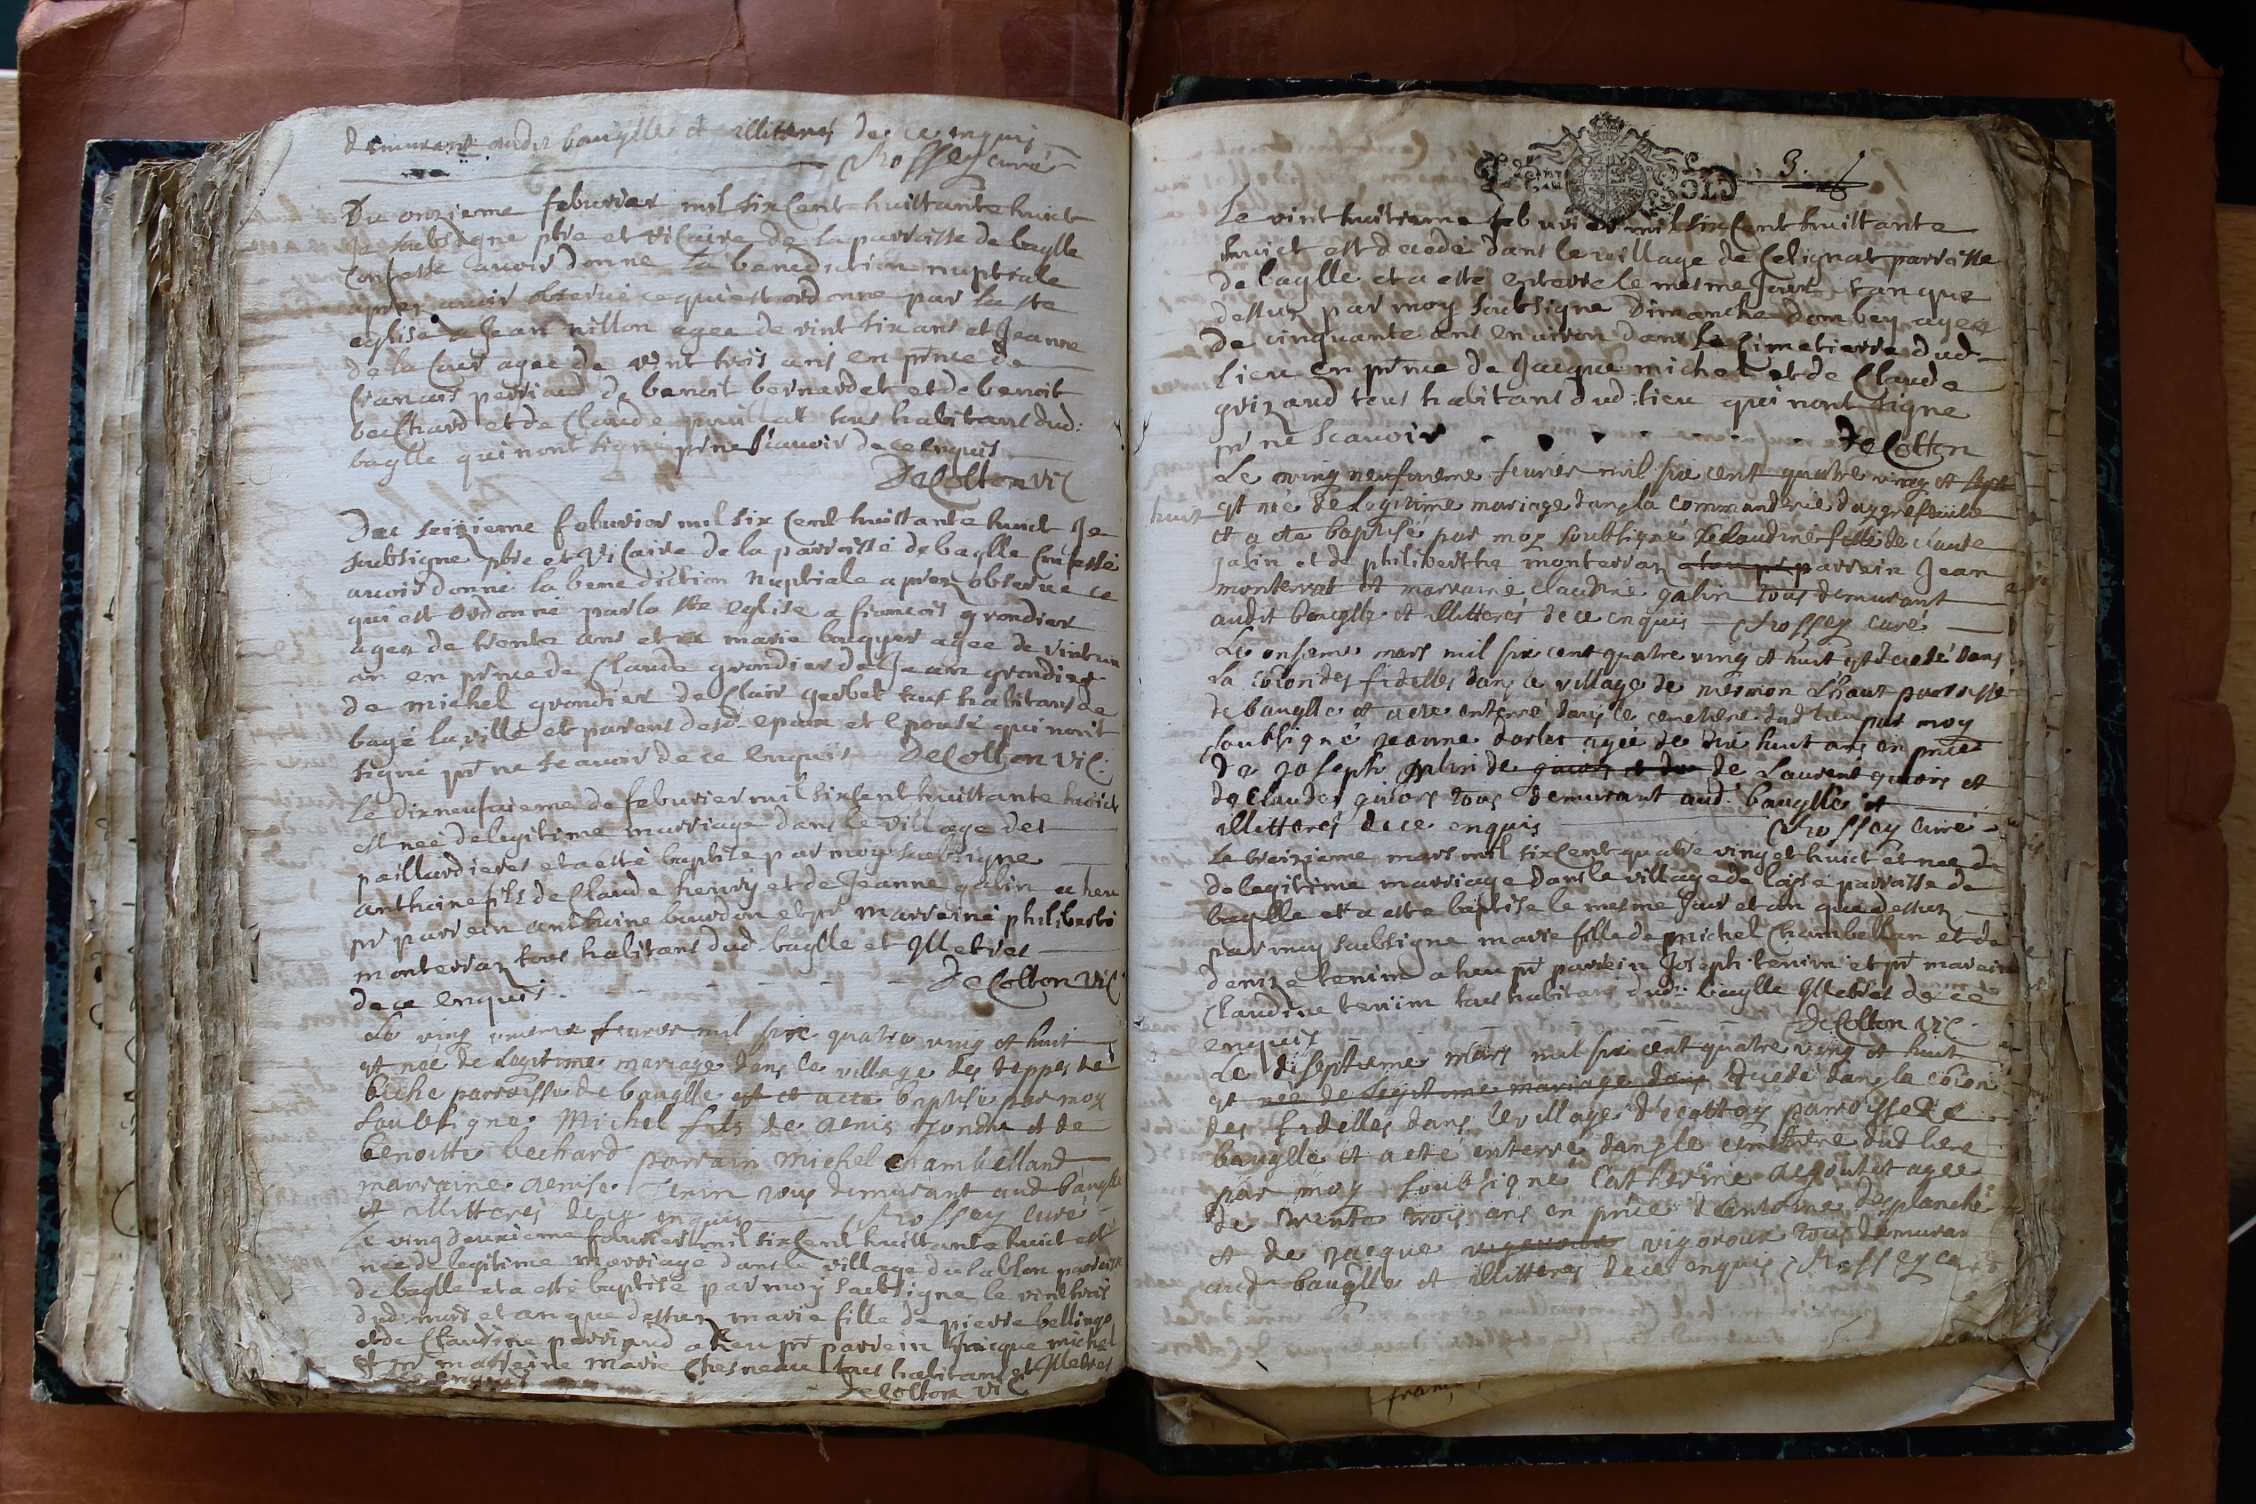 demurant audit bauglle et illiterés de ce enquis
Rossey curé
Du onzieme feburier mil six Cent huittante huict
Je soubsigne pbre et vicaire de la parroisse de baglle
Confesse avoir donne la benediction nuptiale
apres avoir observé ce qui est ordonne par la ste
eglise a Jean nillon agee de vint six ans et Jeanne
de la Cour agee de vint trois ans en pñce de
francois perriaud de benoit bernardet et de benoit
bechard et de Claude tous habitans dud:
baglle qui nont signé pr ne scavoir de ce enquis
DeColton vic
Du seizieme feburier mil six Cent huittante huict Je
soubsigne pbre et vicaire de la parroisse de baglle Confesse
avoir donne la benediction nuptiale aprez observe ce
qui est ordonne par la ste eglise a francois grondier
agez de trente ans et a marie bouquer agee de vint un
an en pñce de Claude grondier de Jean grondier
de michel grondier de Clair gerbet tous habitans de
bagé la ville et parens desd epoux et epouse qui nont
signé pr ne scavoir de ce enquis DeColton vic:
Le dixneufvieme de feburier mil six Cent huittante huict
est neé de legitime marriage dans le village des
paillardieres et a esté baptise par moy soubsigne
anthoine fils de Claude henry et de Jeanne galin a heu
pr parrein anthoine bourdon et pr marreine philiberte
monterraz tous habitans dud baglle et Illetres
de ce enquis - - - - - - DeColton vic
Le ving unieme feurier mil six quatre ving et huit
est nee de legitime mariage dans le village des teppes de
biche parroisse de bauglle est et a ete baptisé par moy
soubsigne Michel fils de denis et de
benoitte bechard parrain michel chambelland
marraine denise tenin tous demurant aud bauglle
et illitteres de ce enquis Rossey curé
Le ving deuxieme feburier mil six Cent huittante huict est
nee de legitime marriage dans le village du sablon parroisse
de baglle et a esté baptise par moy soubsigne le vint trois
dud mois et an que dessus marie fille de pierre bellingo
et de Claudine perriaud a heu pr parrein Jacque michel
et pr marreine marie Chesneau tous habitans et Illetres
de ce enquis
DeColton vic
3.
Le vint huitieme feburier mil six Cent huittante
huict est decede dans le village de Celignat parroisse
de baglle et a esté enterre le mesme Jour et an que
dessus par moy soubsigne Dimanche dombey agez
de cinquante ans environ dans le Cimetierre dud
lieu en pñce de Jacque michel et de Claude
grizaud tous habitans dud: lieu qui nont signe
pr ne scavoir DeColton
Le ving neufvieme feurier mil six cent quatre ving et sept
huit est neé de legitime mariage dans la commanderie daygrefeuille
et a ete baptisé par moy soubsigné Claudine fille de claude
galin et de philiberthe monterraz parrain Jean
monterrat et marraine claudine galin tous demurant
audit bauglle et illitteres de ce enquis Rossey curé
Le onsieme mars mil six cent quatre ving et huit est decedé dans
La coion des fidelles dans le village de mermon Lhaut parroisse
de bauglle et a ete enterré dans le cemetiere dud lieu par moy
soubsigne Jeanne dorlet agée de dix huit ans en pñce
de Joseph galin de guiois et de de Laurent guiois et
de Claude guiois tous demurant aud. bauglle et
illitteres de ce enquis Rossey curé
Le treizieme mars mil six Cent quatre ving et huict et nee de
de legitime marriage dans le village de loise parroisse de
baglle et a esté baptise le mesme Jour et an que dessus
par moy soubsigne marie fille de michel Chambellan et de
denize tenim a heu pr parrein Joseph tenim et pr mareine
Claudine tenim tous habitans dud: baglle Illetres de ce
enquis - - - - DeColton vic
Le diseptieme mars mil six cent quatre ving et huit
est née de legitime mariage dans decedé dans la coion
des fidelles dans le village parroisse de
bauglle et a eté enterré dans le cemetiere dud lieu
par moy soubsigne Catherine agee
de trente trois ans en pñce dantoine desplanche
et de jacque vigoroux vigoroux tous demuran
aud bauglle et illitteres de ce enquis Rossey curé